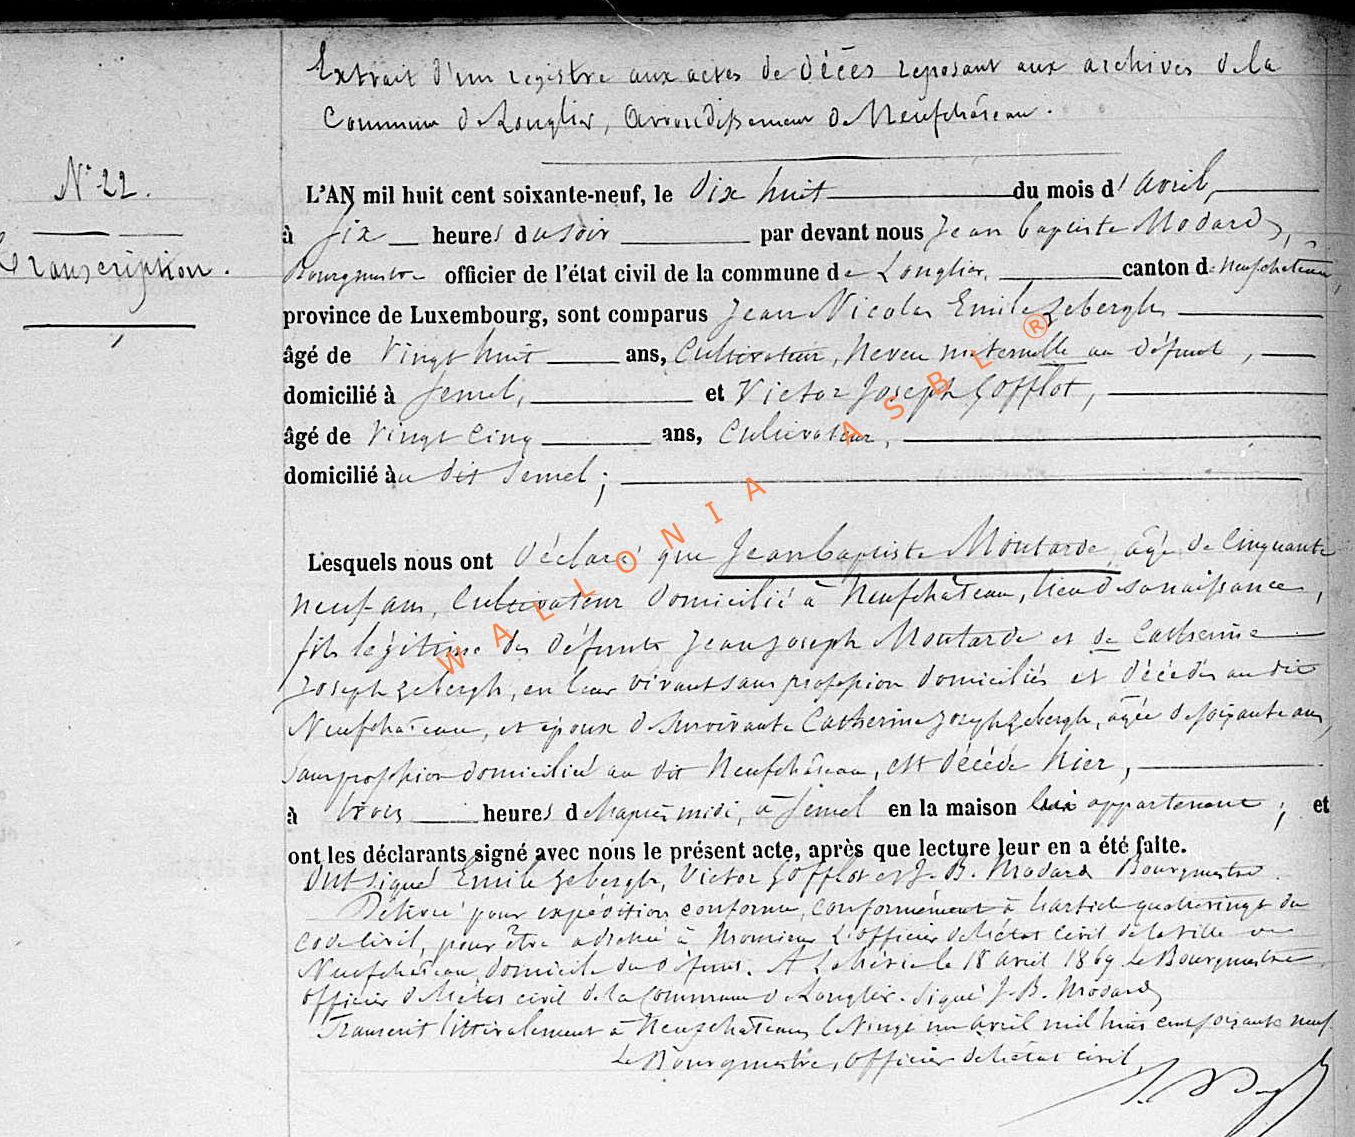 Extrait d'un registre aux actes de décès reposant aux archives de la
Commune de Longlier, Arrondissement de Neufchâteau.
N° 22.
Transcription.
L'AN mil huit cent soixante-neuf, le dix huit du mois d'avril,
à six heures du soir par devant nous Jean Baptiste Modard,
Bourgmestre officier de l'état civil de la commune de Longlier, canton de Neufchâteau,
province de Luxembourg, sont comparus Jean Nicolas Emile Gebergh
âgé de vingt huit ans, Cultivateur, neveu maternelle au défunt,
domicilié à Semel, et Victor Joseph Gofflot,
âgé de vingt cinq ans, Cultivateur,
domicilié au dit Semel;
Lesquels nous ont déclaré que Jean baptiste Moutarde, âgé de Cinquante
neuf ans, Cultivateur domicilié à Neufchâteau, lieu de sa naissance,
fils légitime des défunts Jean Joseph Moutarde et de Catherine
Joseph Gebergh, en leur vivant sans profession domiciliés et décédés au dit
Neufchâteau, et époux de survivante Catherine Joseph Gebergh, âgée de soixante ans,
sans profession domiciliée au dit Neufchâteau, est décédé hier,
à trois heures de l'après midi, à Semel en la maison lui appartenant; et
ont les déclarants signé avec nous le présent acte, après que lecture leur en a été faite.
Ont signé Emile Gebergh, Victor Gofflot et J. B. Modard Bourgmestre.
Délivré pour expédition conforme, conformément à l'article quatrevingt du
code civil, pour être adressé à Monsieur l'officier de l'état civil de la ville de
Neufchâteau, domicile du défunt. A le 18 avril 1869 le Bourgmestre
officier de l'état civil de la Commune de Longlier. Signé J. B. Modard
Transcrit littéralement à Neufchâteau, le vingt un avril mil huit cent soixante neuf
Le Bourgmestre, officier de l'état civil,
WALLONIA ASBL ®